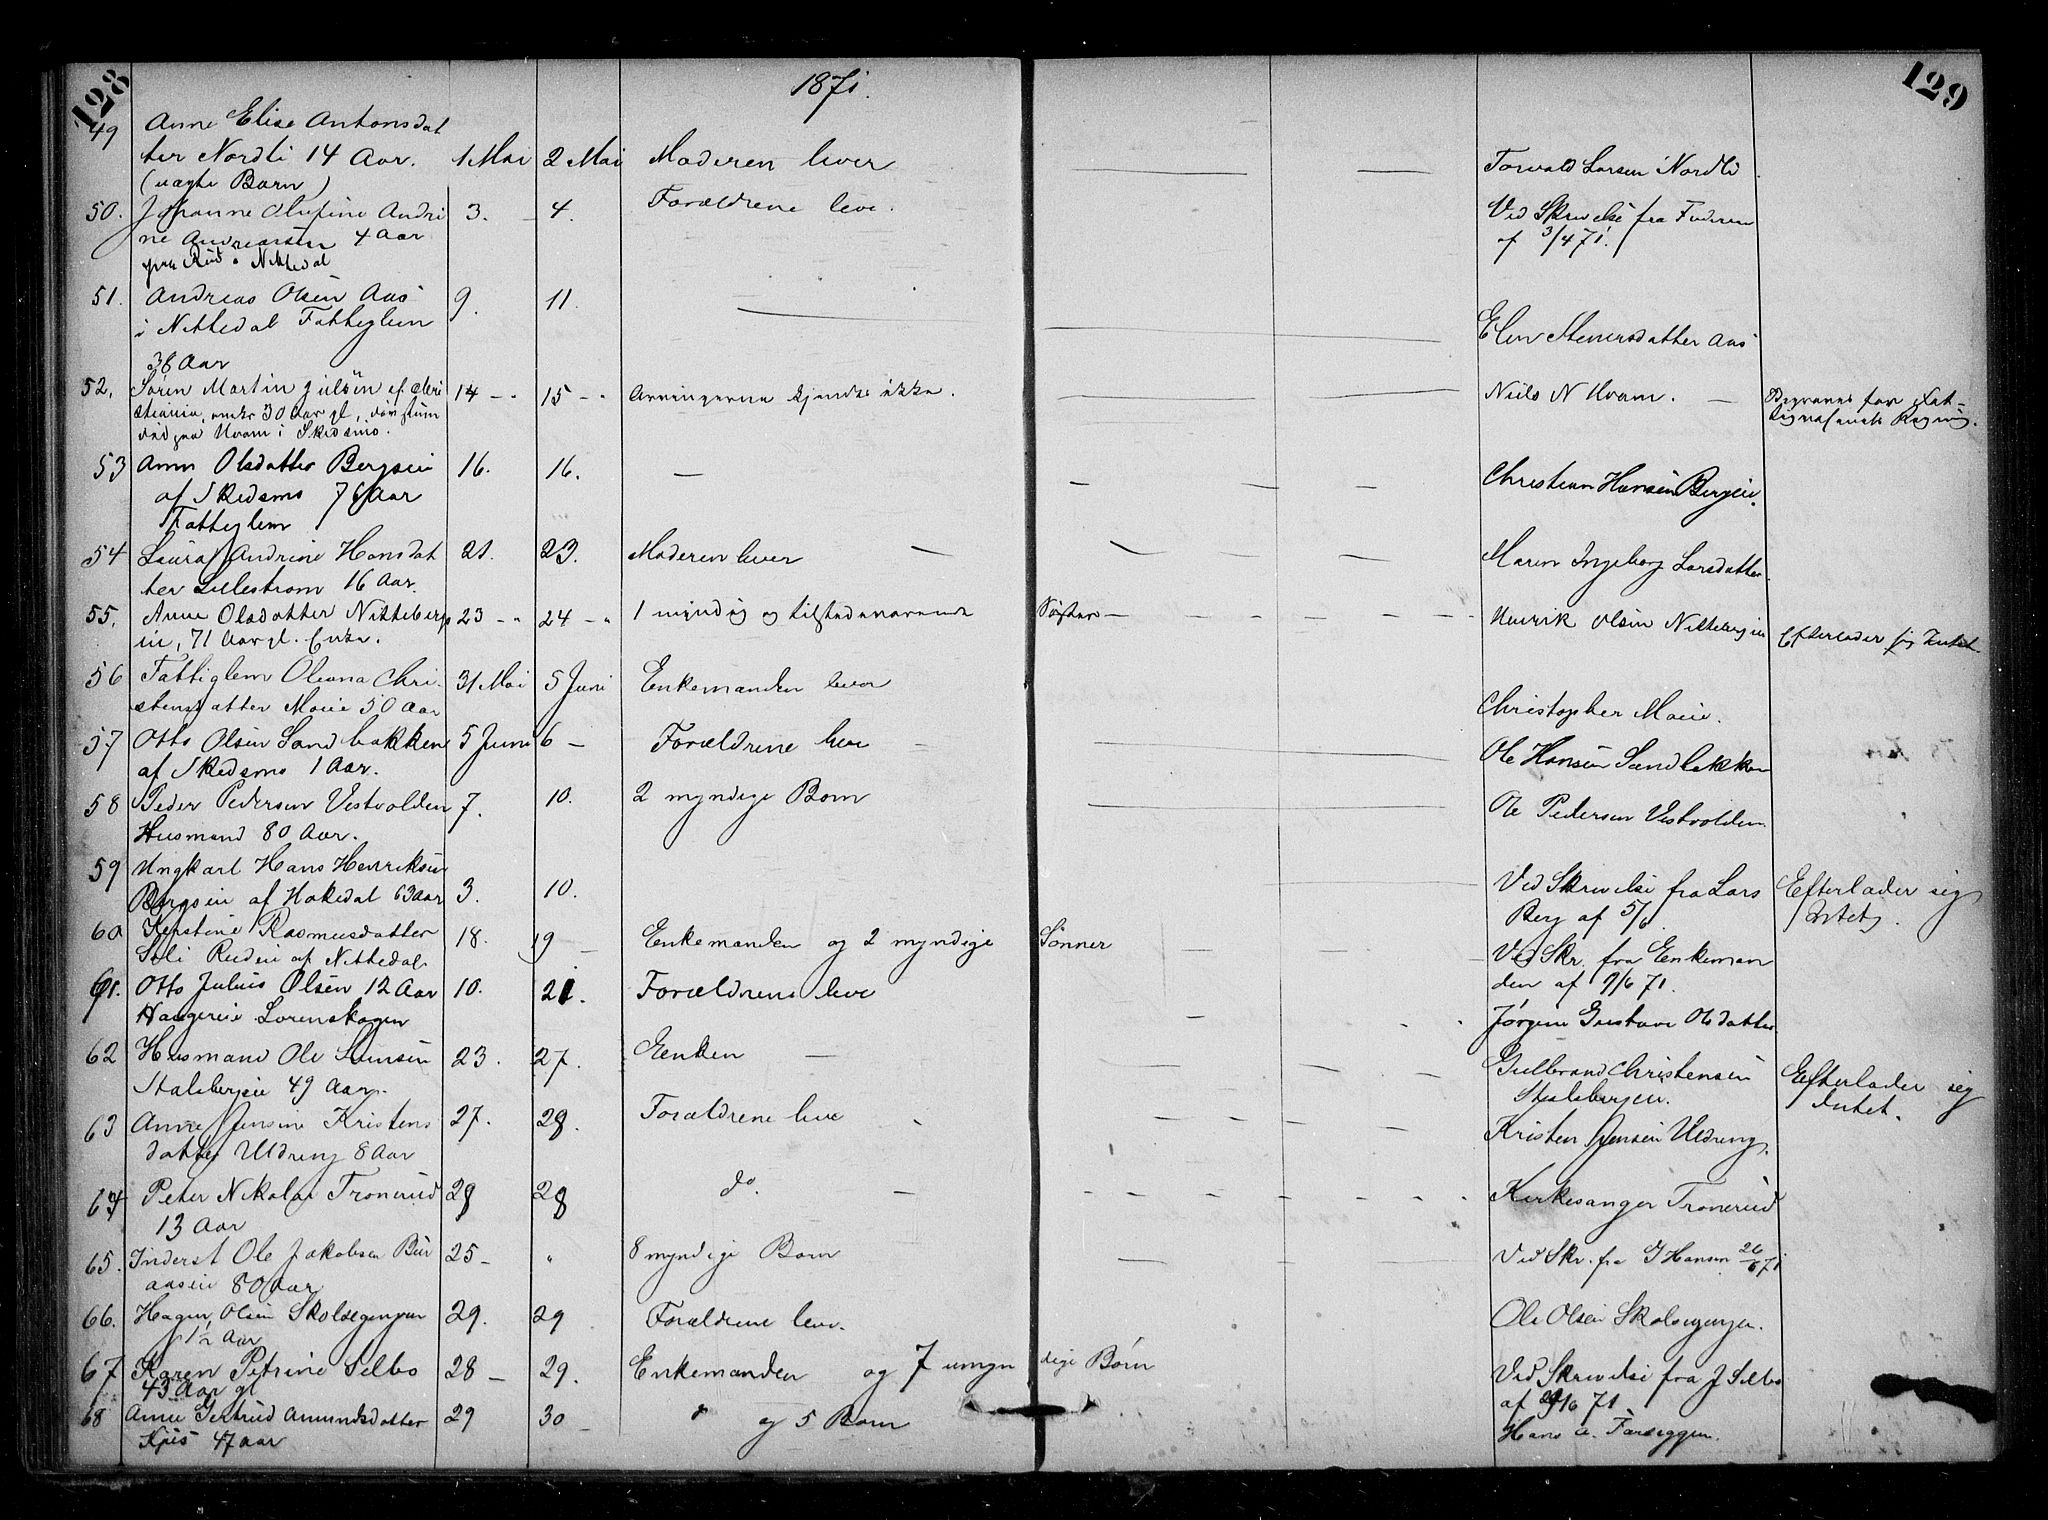 128
1871.
129
49 Anne Elise Antonsdat
ter Nordli 14 Aar. 1 Mai 2 Mai Moderen lever Torvald Larsen Nordli
(uægte Barn)
50. Johanne Andri 3. 4. Forældrene leve. Ved Skrivelse fra Faderen
ne Andreassen 4 Aar af 3/4 71.
fra Rud i Nittedal
51. Andreas Olsen Aas 9. 11. Elen Stenersdatter Aas
i Nittedal Fattiglem
38 Aar
52. Søren Martin Julsen af Chri 14 - " 15 - " Arvingerne kjendes ikke. Niels N Hvam. Begraves for Fat-
stiania, omtr 30 Aar gl, døvstum tigvæsenets Regning.
død paa Hvam i Skedsmo.
53 Ann Olsdatter Bergseie 16. 16. Christian Hansen Bergeie.
af Skedsmo 76 Aar
Fattiglem
54 Laura Andrine Hansdat 21. 23. Moderen lever Maren Ingeborg Larsdatter.
ter Lillestrøm 16 Aar.
55. Anne Olsdatter Nittebergs 23 - " 24 - " 1 myndig og tilstedeværende Søster Henrik Olsen Nittebergeie
eie, 71 Aar gl. Enke. Efterlader sig Intet.
56 Fattiglem Oleana Chri 31 Mai 5 Juni Enkemanden lever
stensdatter Moeie 50 Aar Christopher Moeie.
57 Otto Olsen Sandbakken 5 Juni 6 - Forældrene leve
af Skedsmo 1 Aar. Ole Hansen Sandbakken
58 Peder Pedersen Vestvolden 7. 10. 2 myndige Børn Ole Pedersen Vestvolden
Husmand 80 Aar.
59 Ungkarl Hans Henriksen Ved Skrivelse fra Lars Efterlader sig
Bergseie af Hakedal 63 aar 3. 10. Berg af 5/6. Intet.
60 Kjerstine Rasmusdatter 18. 19 Enkemanden og 2 myndige Sønner Ved Skr. fra Enkeman
Rudeie af Nittedal. den af 9/6 71.
61. Otto Julius Olsen 12 Aar 10. 21. Forældrene leve
Haugereie Lørenskogen Jørgine Gustava Olsdatter
62 Husmand Ole 23. 27. Enken Gulbrand Christensen Efterlader sig
Stalsbergeie 49 Aar. Stalsbergeie. Intet.
63 Anne Jensine Kristens 27. 28. Forældrene leve Kristen Jensen Uldreng.
datter Uldreng 8 Aar
64 Peter Nikolai Tronerud 28 28 do. Kirkesanger Tronerud
13 Aar
65. Inderst Ole Jakobsen Bur 25 - " 8 myndige Børn Ved Skr. fra G Hansen 26/6 71
aaseie 80 Aar
66. Hagen Olsen 29. 29 Forældrene leve. Ole Olsen
1½ Aar
67 Karen Petrine Selbo 28 - 29. Enkemanden og 7 umyn dige Børn Ved Skrivelse fra J Selbo
43 Aar gl af 29/6 71
68 Anne Gertrud Amundsdatter 29 30 og 5 Børn
47 aar Hans A.